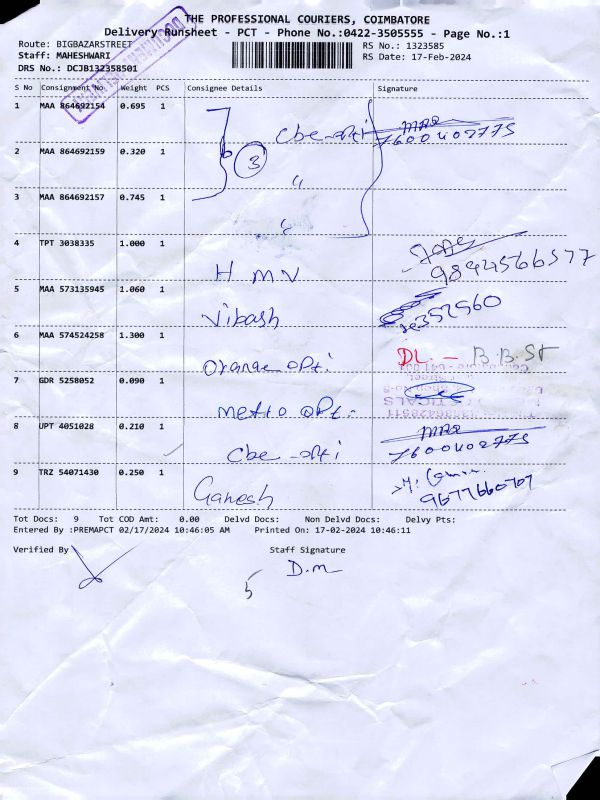 THE PROFESSIONAL COURIERS, COIMBATORE
Delivery Runsheet - PCT - Phone No.:0422-3505555 - Page No.:1
Route: BIGBAZARSTREET RS No.: 1323585
Staff: MAHESHWARI RS Date: 17-Feb-2024
DRS No.: DCJB132358501
S No Consignment No. Weight PCS Consignee Details Signature
1 MAA 864692154 0.695 1 Cbe-opti 7600402775
2 MAA 864692159 0.320 1 3 "
3 MAA 864692157 0.745 1 "
4 TPT 3038335 1.000 1 H M V 9894566577
5 MAA 573135945 1.060 1 Vikash 352560
6 MAA 574524258 1.300 1 Orange opti DL. - B.B. St
7 GDR 5258052 0.090 1 metro opt.
8 UPT 4051028 0.210 1 Cbe-opti 7600402775
9 TRZ 54071430 0.250 1 Ganesh 9677660707
Tot Docs: 9 Tot COD Amt: 0.00 Delvd Docs: Non Delvd Docs: Delvy Pts:
Entered By :PREMAPCT 02/17/2024 10:46:05 AM Printed On: 17-02-2024 10:46:11
Verified By Staff Signature
D.m